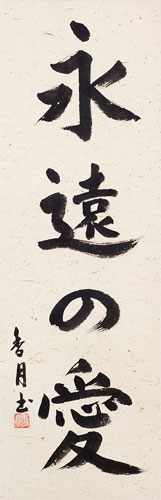 永遠の愛
香月書